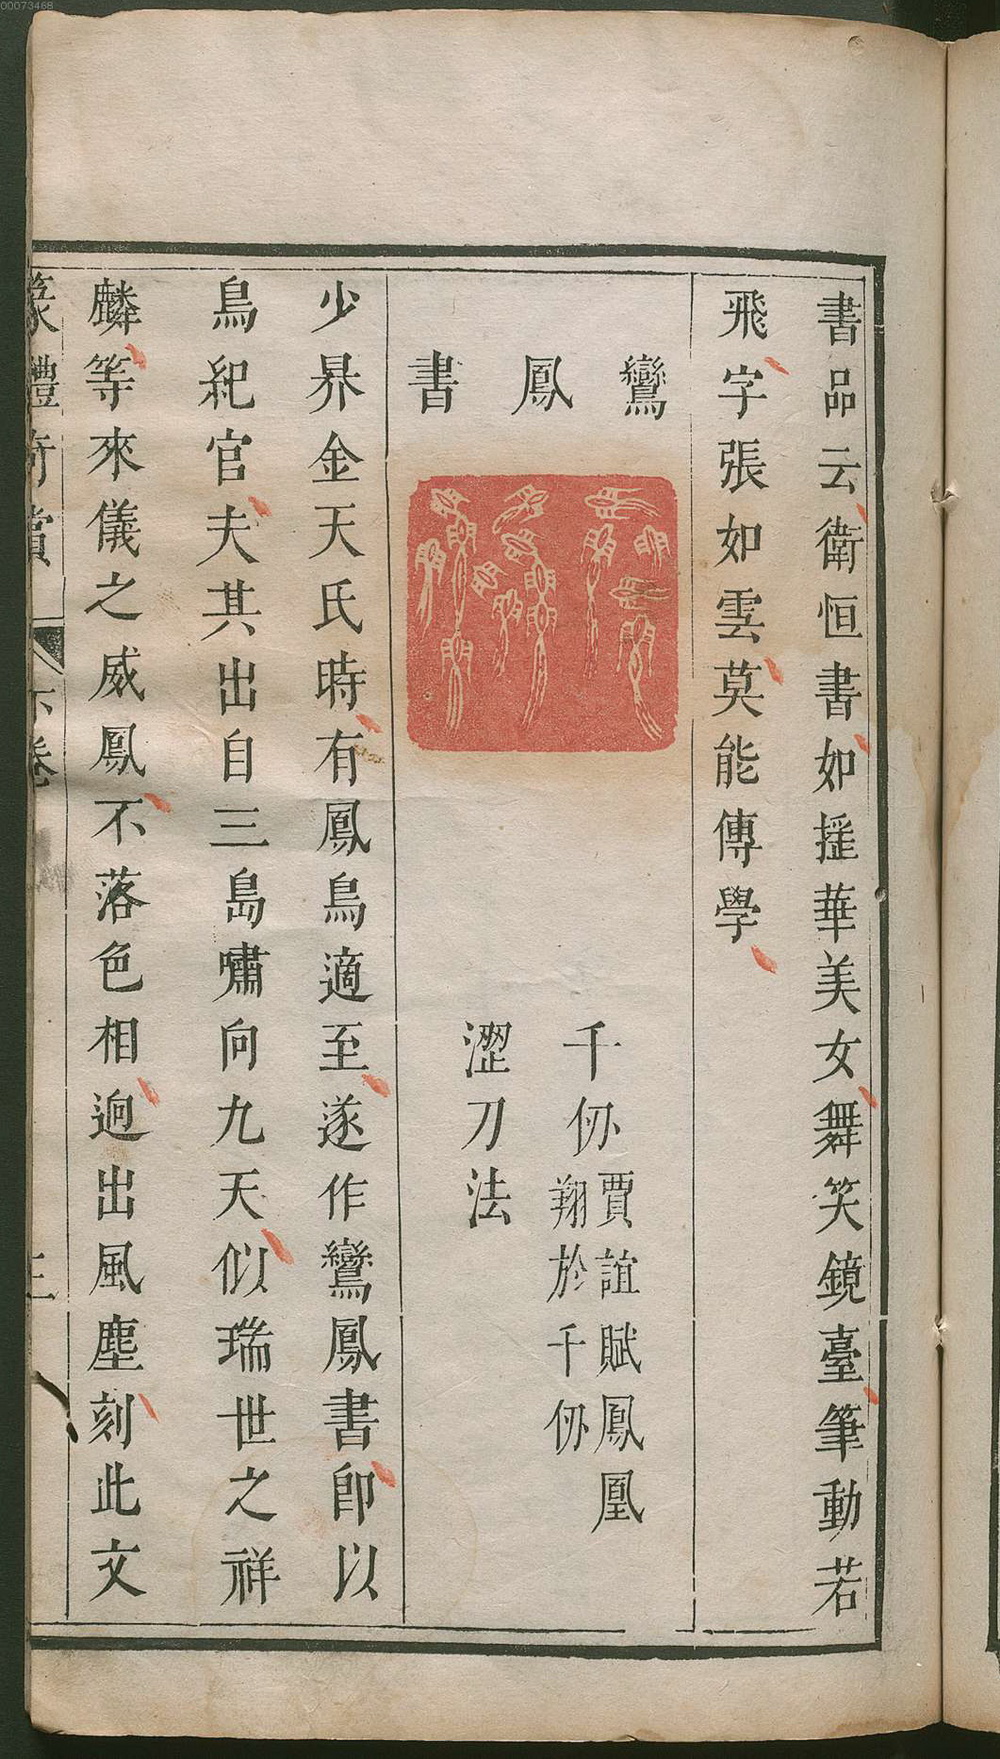 00073468
書品云衛恒書如㨱華美女舞笑鏡臺筆動若
飛字張如雲莫能傳學
鸞鳳書
千仭
賈誼賦鳳凰
翔於千仭
澀刀法
少昦金天氏時有鳳鳥適至遂作鸞鳳書卽以
鳥紀官夫其出自三島嘯向九天似瑞世之祥
麟等來儀之威鳳不落色相逈出風塵刻此文
篆體奇賞
下卷